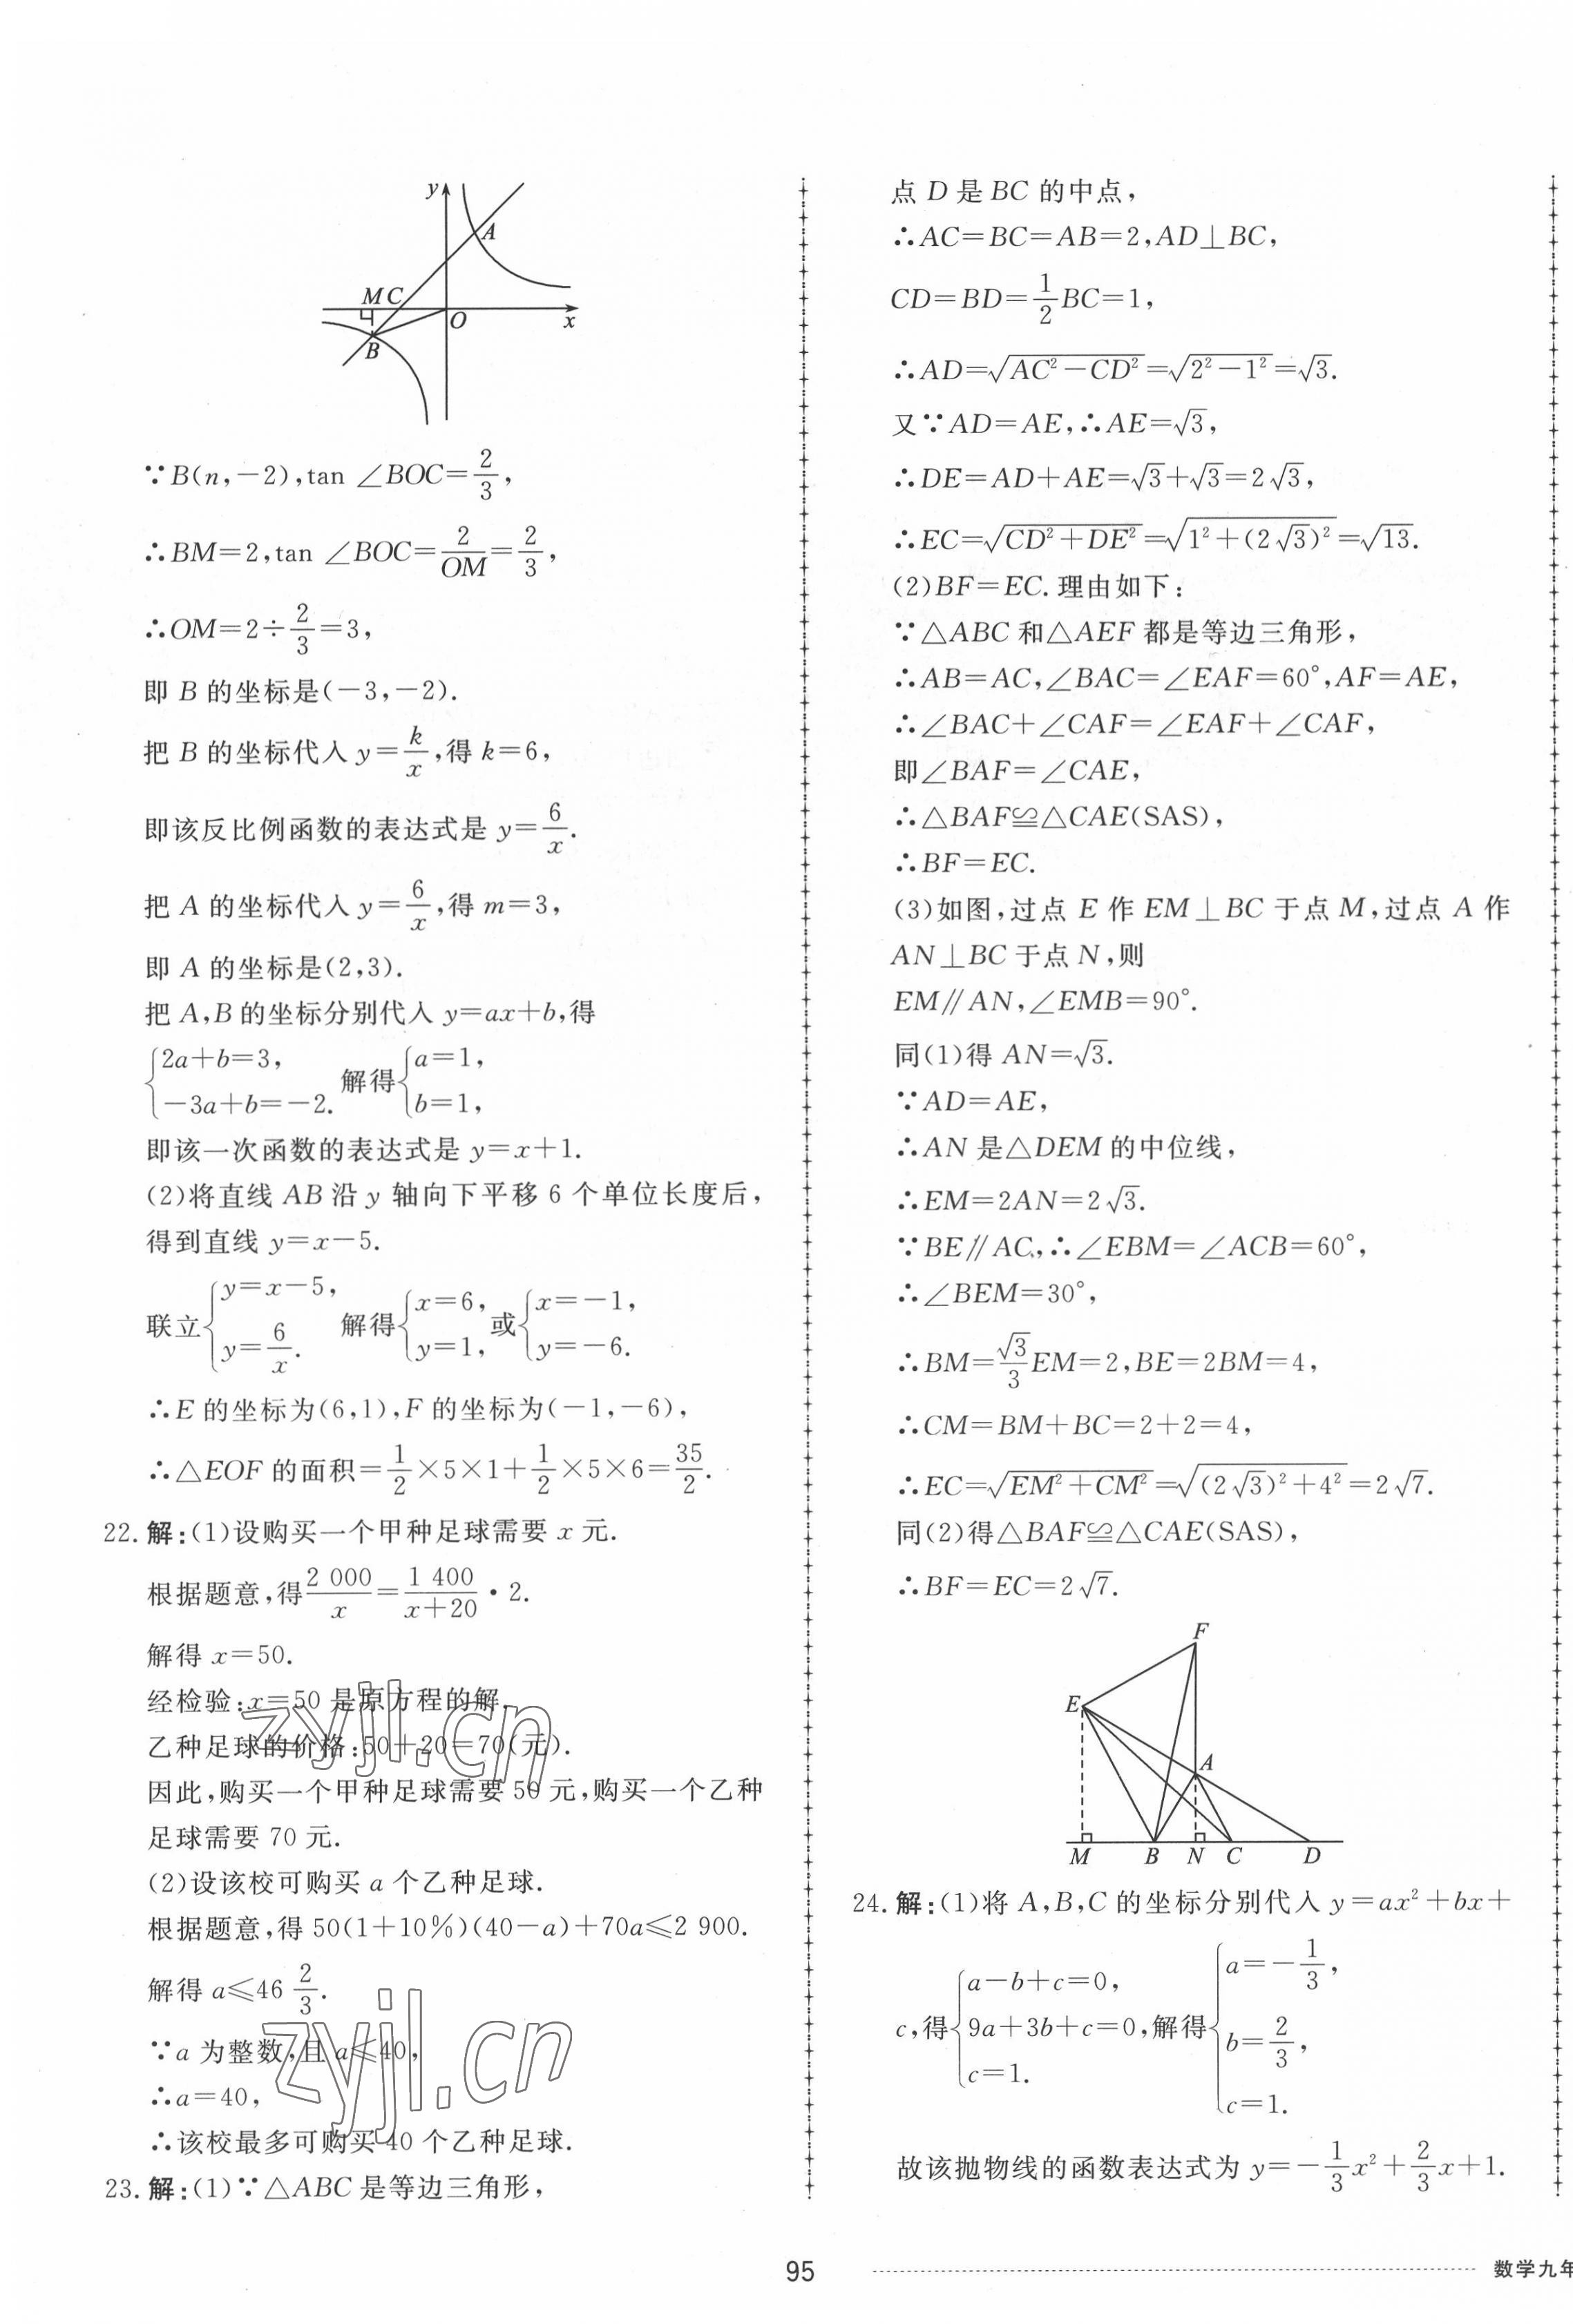 y
A
M C
O
x
B
∵B(n,－2),tan ∠BOC=2/3,
∴BM=2,tan ∠BOC=2/OM=2/3,
∴OM=2÷2/3=3,
即 B 的坐标是(－3,－2).
把 B 的坐标代入 y=k/x,得 k=6,
即该反比例函数的表达式是 y=6/x.
把 A 的坐标代入 y=6/x,得 m=3,
即 A 的坐标是(2,3).
把 A,B 的坐标分别代入 y=ax+b,得
{2a+b=3, －3a+b=－2. 解得{a=1, b=1,
即该一次函数的表达式是 y=x+1.
(2)将直线 AB 沿 y 轴向下平移 6 个单位长度后,
得到直线 y=x－5.
联立{y=x－5, y=6/x. 解得{x=6, y=1, 或{x=－1, y=－6.
∴E 的坐标为(6,1),F 的坐标为(－1,－6),
∴△EOF 的面积=1/2×5×1+1/2×5×6=35/2.
22. 解:(1)设购买一个甲种足球需要 x 元.
根据题意,得2 000/x=1 400/(x+20)·2.
解得 x=50.
经检验:x=50 是原方程的解.
乙种足球的价格:50+20=70(元).
因此,购买一个甲种足球需要 50 元,购买一个乙种
足球需要 70 元.
(2)设该校可购买 a 个乙种足球.
根据题意,得 50(1+10%)(40－a)+70a≤2 900.
解得 a≤46 2/3.
∵a 为整数,且 a≤40,
∴a=40,
∴该校最多可购买 40 个乙种足球.
23. 解:(1)∵△ABC 是等边三角形,
zyjl.cn
zyjl.cn
点 D 是 BC 的中点,
∴AC=BC=AB=2,AD⊥BC,
CD=BD=1/2BC=1,
∴AD=√(AC²－CD²)=√(2²－1²)=√3.
又∵AD=AE,∴AE=√3,
∴DE=AD+AE=√3+√3=2√3,
∴EC=√(CD²+DE²)=√(1²+(2√3)²)=√13.
(2)BF=EC.理由如下:
∵△ABC 和△AEF 都是等边三角形,
∴AB=AC,∠BAC=∠EAF=60°,AF=AE,
∴∠BAC+∠CAF=∠EAF+∠CAF,
即∠BAF=∠CAE,
∴△BAF≌△CAE(SAS),
∴BF=EC.
(3)如图,过点 E 作 EM⊥BC 于点 M,过点 A 作
AN⊥BC 于点 N,则
EM∥AN,∠EMB=90°.
同(1)得 AN=√3.
∵AD=AE,
∴AN 是△DEM 的中位线,
∴EM=2AN=2√3.
∵BE∥AC,∴∠EBM=∠ACB=60°,
∴∠BEM=30°,
∴BM=√3/3EM=2,BE=2BM=4,
∴CM=BM+BC=2+2=4,
∴EC=√(EM²+CM²)=√((2√3)²+4²)=2√7.
同(2)得△BAF≌△CAE(SAS),
∴BF=EC=2√7.
F
E
A
M B N C D
24. 解:(1)将 A,B,C 的坐标分别代入 y=ax²+bx+
c,得{a－b+c=0, 9a+3b+c=0, c=1. 解得{a=－1/3, b=2/3, c=1.
故该抛物线的函数表达式为 y=－1/3x²+2/3x+1.
95
数学九年